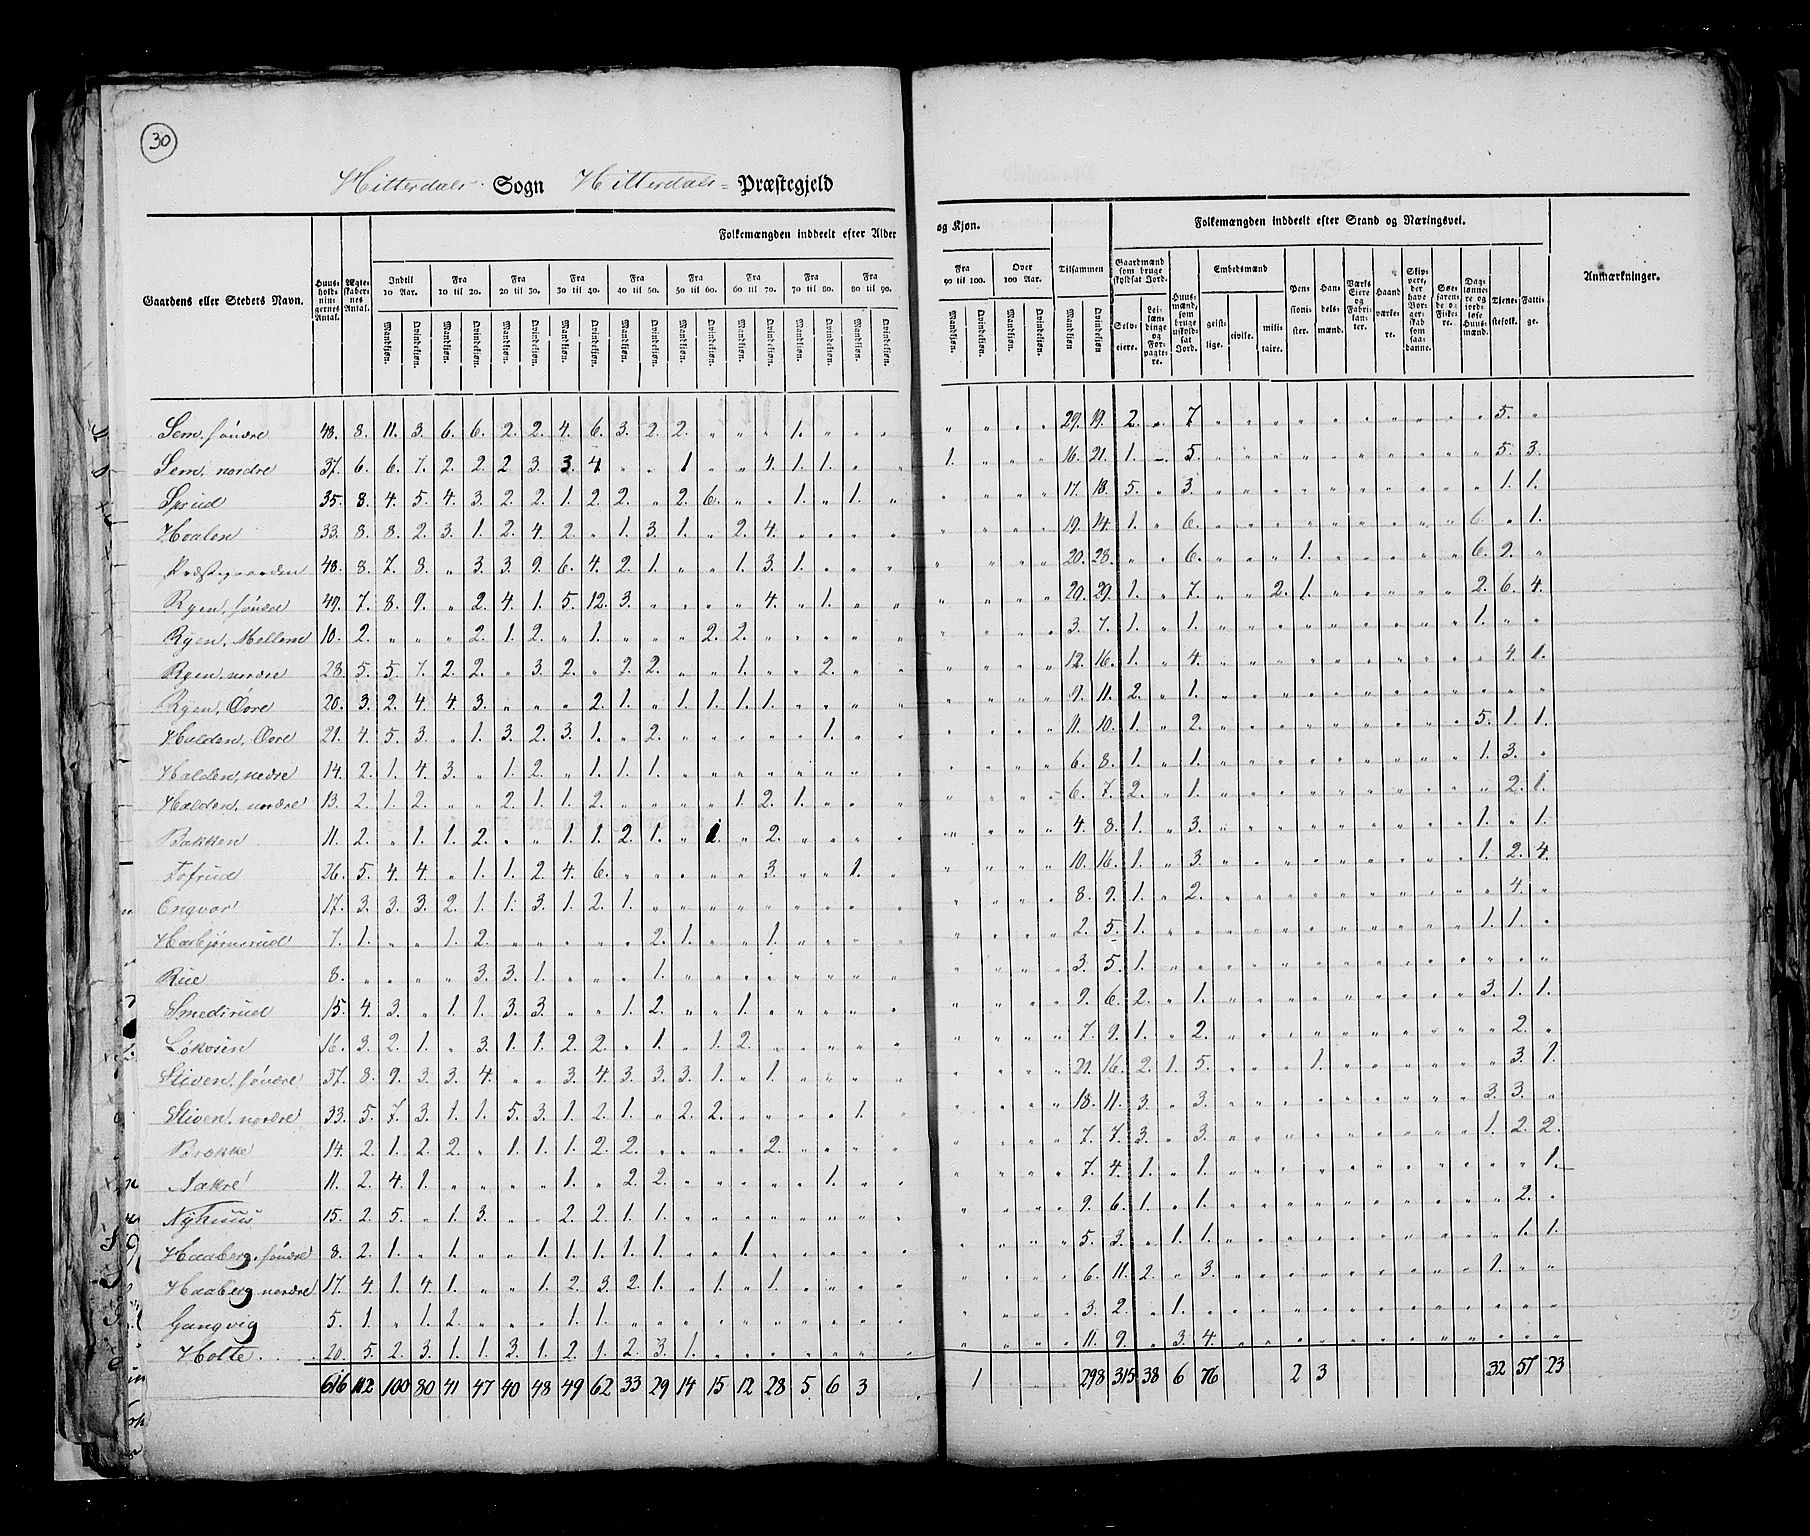 30
Hitterdals Sogn Hitterdals Præstegjeld
Gaardens eller Stedets Navn. Huusholdningernes Antal. Ægteskabernes Antal. Folkemængden inddeelt efter Alder og Kjøn. Tilsammen Folkemængden inddeelt efter Stand og Næringsvei. Anmærkninger.
Indtil 10 Aar. Fra 10 til 20. Fra 20 til 30. Fra 30 til 40. Fra 40 til 50. Fra 50 til 60. Fra 60 til 70. Fra 70 til 80. Fra 80 til 90. Fra 90 til 100. Over 100 Aar.
Gaardmænd som bruge skyldsat Jord. Huusmænd, som bruge uskyldsat Jord. Embedsmænd Pensionister. Handelsmænd. Værks Eiere og Fabrikanter. Haandværkere. Skippere, der have Borgerskab som saadanne. Søefarende og Fiskere. Daglønnere og jordløse Huusmænd. Tjenestefolk. Fattige.
Mandkjøn. Qvindekjøn. Selveiere. Leilændinge og Forpagtere. geistlige. civile. militaire.
Sem, søndre 48. 8. 11. 3. 6. 6. 2. 2. 4. 6. 3. 2. 2. " " " 1. " " " " " " " 29. 19. 2. " 7 " " " " " " " " " " 5. "
Sem, nordre 37. 6. 6. 7. 2. 2. 2. 3. 3. 4. " " 1 " " 4. 1. 1. " " 1. " " " 16. 21. 1. " 5. " " " " " " " " " " 5. 3.
Sprud 35. 8. 4. 5. 4. 3. 2. 2. 1. 2. 2. " 2. 6. " " 1. " 1. " " " " " 17. 18. 5. " 3. " " " " " " " " " " 1. 1.
Hvalen 33. 8. 8. 2. 3. 1. 2. 4. 2. " 1. 3. 1. " 2. 4. " " " " " " " " 19. 14. 1. " 6. " " " " " " " " " 6. " 1.
Præstegaarden 48. 8. 7. 8. " 3. 3. 9. 6. 4. 2. 1. " " 1. 3. 1. " " " " " " " 20. 28. " " 6. " " " 1. " " " " " 6. 9. "
Ryen, søndre 49. 7. 8. 9. " 2. 4. 1. 5. 12. 3. " " " " 4. " 1. " " " " " " 20. 29. 1. " 7. " " 2. 1. " " " " " 2. 6. 4.
Ryen, Mellem 10. 2. " " " 2. 1. 2. " 1. " " " 2. 2. " " " " " " " " " 3. 7. 1. " 1. " " " " " " " " " 1. " "
Ryen, nordre 28. 5. 5. 7. 2. 2. " 3. 2. " 2. 2. " " 1. " " 2. " " " " " " 12. 16. 1. " 4. " " " " " " " " " " 4. 1.
Ryen, Øvre 20. 3. 2. 4. 4. 3. " " " 2. 1. " 1. 1. 1. 1. " " " " " " " " 9. 11. 2. " 1. " " " " " " " " " " " "
Halden, Øvre 21. 4. 5. 3. " 1. 3. 2. 3. 1. " 2. " " " " " 1. " " " " " " 11. 10. 1. " 2. " " " " " " " " " 5. 1. 1.
Halden, nedre 14. 2. 1. 4. 3. " 1. 2. " 1. 1. 1. " " " " " " " " " " " " 6. 8. 1. " 1. " " " " " " " " " 1. 3. "
Halden, nordre 13. 2. 1. 2. " " 2. 1. 1. 2. " " " " 1. 2. 1. " " " " " " " 6. 7. 2. " 1. " " " " " " " " " " 2. 1.
Bakken 11. 2. " 1. 1. 2. " " 1. 1. 2. 1. " 1. " 2. " " " " " " " " 4. 8. 1. " 3. " " " " " " " " " 1. " 1.
Tofrud 26. 5. 4. 4. " 1. 1. 2. 4. 6. " " " " " 3. " " 1. " " " " " 10. 16. 1. " 3. " " " " " " " " " 1. 2. 4.
Engvar 17. 3. 3. 3. 2. 1. 1. 3. 1. 2. 1. " " " " " " " " " " " " " 8. 9. 1. " 2. " " " " " " " " " " 4. "
Hasbjørnsrud 7. 1. " " 1. 2. " " " " " 2. 1. " " 1. " " " " " " " " 2. 5. 1. " " " " " " " " " " " 1. 1. "
Rue 8. " " " " 3. 3. 1. " " " 1. " " " " " " " " " " " " 3. 5. 1. " " " " " " " " " " " " " "
Smedsrud 15. 4. 3. " 1. 1. 3. 3. " " 1. 2. " " 1. " " " " " " " " " 9. 6. 2. " 1. " " " " " " " " " 3. 1. 1.
Løkosen 16. 3. 2. 1. " 3. 1. 1. 2. 2. " 1. " 1. 2. " " " " " " " " " 7. 9. 1. " 2. " " " " " " " " " " 2. "
Stiven, søndre 37. 8. 9. 3. 3. 4. " " 3. 4. 3. 3. 3. 1. " 1. " " " " " " " " 21. 16. 2. 1. 5. " " " 1. " " " " " " 3. 1.
Stiven, nordre 33. 5. 7. 3. 1. 1. 5. 3. 1. 2. 1. " 2. 2. " " " " 1. " " " " " 18. 11. 3. " 3. " " " " " " " " " 3. 3. "
Brække 14. 2. 1. 2. 2. " 1. 1. 1. 2. 2. " " " " 2. " " " " " " " " 7. 7. 3. " 3. " " " " " " " " " 1. 2. 2.
Aakre 11. 2. 4. 1. " " " " 1. " 2. 2. " " " " " 1. " " " " " " 7. 4. 1. " 1. " " " " " " " " " " " 1.
Nyhuus 15. 2. 5. " 1. 3. " " 2. 2. 1. 1. " " " " " " " " " " " " 9. 6. 1. " 1. " " " " " " " " " " 2. "
Haaberg, søndre 8. 2. 1. " 1. " " 1. 1. 1. 1. 1. " " 1. " " " " " " " " " 5. 3. " 1. 1. " " " " " " " " " " 1. 1.
Haaberg nordre 17. 4. 1. 4. 1. " " 1. 2. 3. 2. 1. " 1. " 1. " " " " " " " " 6. 11. 2. " 3. " " " " " " " " " 1. " "
Gangvig 5. 1. " 1. 2. " " " 1. 1. " " " " " " " " " " " " " " 3. 2. " 1. " " " " " " " " " " " " "
Holte 20. 5. 2. 3. 1. 1. 3. 1. 2. 1. 2. 3. 1. " " " " " " " " " " " 11. 9. " 3. 4. " " " " " " " " " " " "
616 112 100 80 41 47 40 48 49 62 33 29 14 15 12 28 5 6 3 1 298 315 38 6 76 2 3 32 57 23